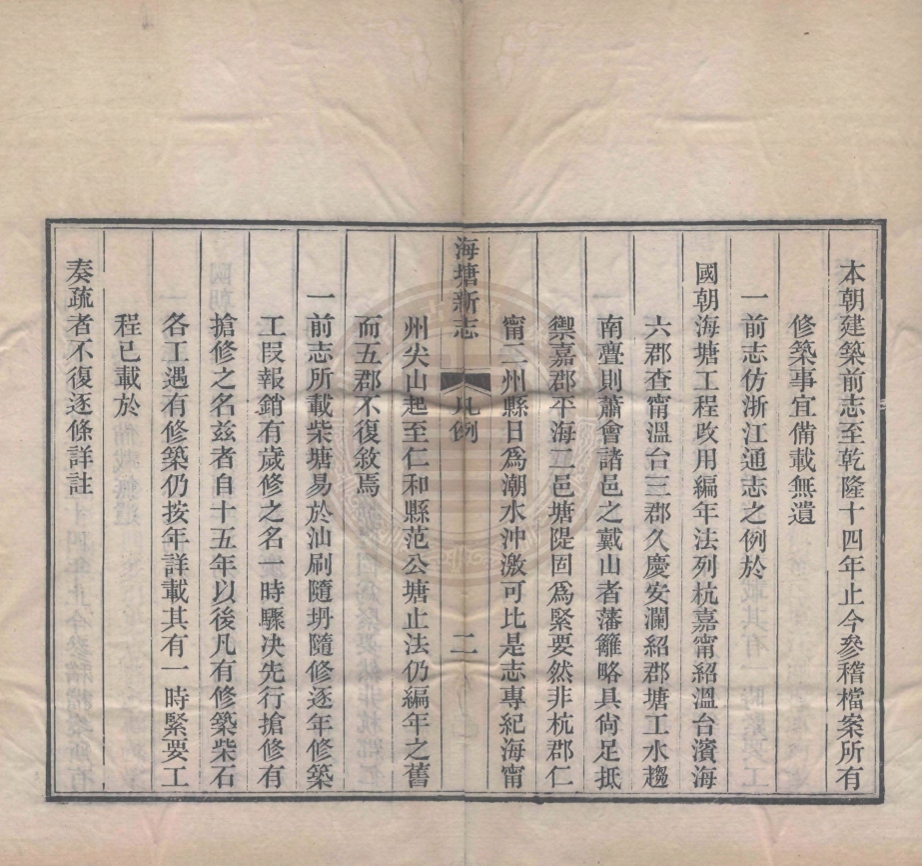 本朝建築前志至乾隆十四年止今參稽檔案所有
修築事宜備載無遺
一前志仿浙江通志之例於
國朝海塘工程改用編年法列杭嘉甯紹溫台濱海
六郡查甯溫台三郡久慶安瀾紹郡塘工水趨
南亹則蕭會諸邑之戴山者藩籬略具尙足抵
禦嘉郡平海二邑塘隄固爲緊要然非杭郡仁
甯二州縣日爲潮水沖激可比是志專紀海甯
海塘新志 凡例 二
州尖山起至仁和縣范公塘止法仍編年之舊
而五郡不復敘焉
一前志所載柴塘易於汕刷隨坍隨修逐年修築
工叚報銷有歲修之名一時驟决先行搶修有
搶修之名兹者自十五年以後凡有修築柴石
各工遇有修築仍按年詳載其有一時緊要工
程已載於
奏疏者不復逐條詳註